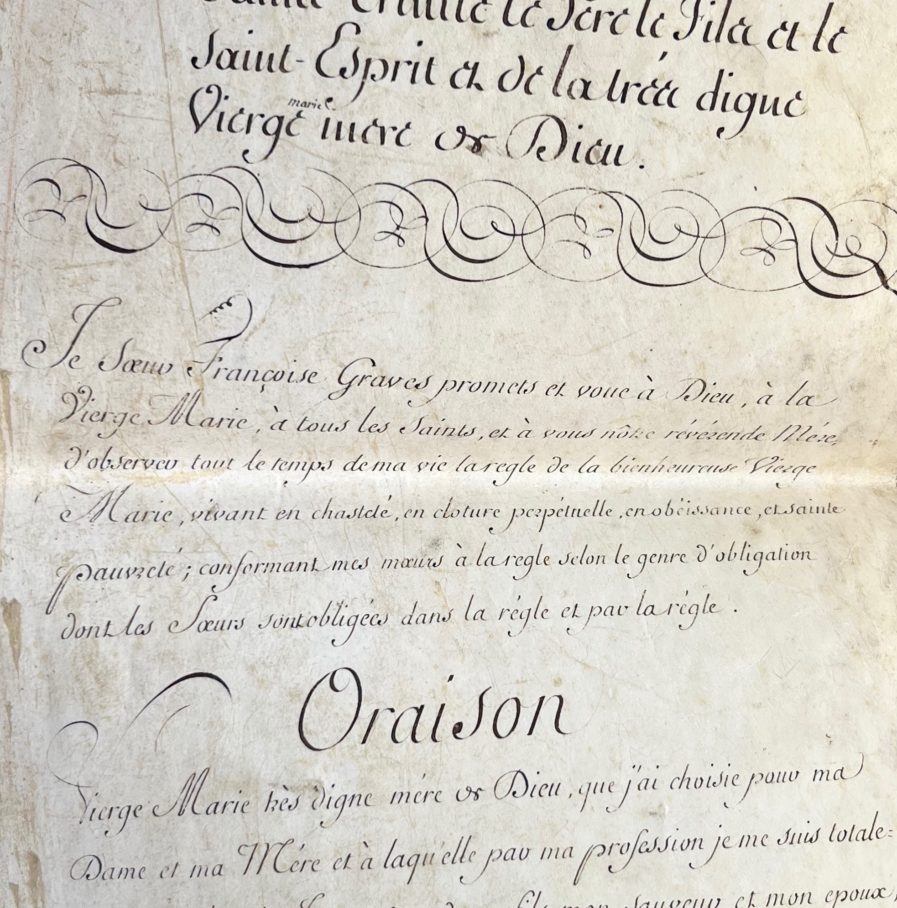 Trinité le Père le Fils et le
Saint-Esprit et de la très digne
marie
Vierge mère de Dieu.
Je Sœur Françoise Graves promets et voue à Dieu, à la
Vierge Marie, à tous les Saints, et à vous nôtre révérende Mére,
d'observer tout le temps de ma vie la regle de la bienheureuse Vierge
Marie, vivant en chasteté, en cloture perpétuelle, en obéissance, et sainte
pauvreté; conformant mes mœurs à la regle selon le genre d'obligation
dont les Sœurs sont obligées dans la régle et par la régle.
Oraison
Vierge Marie très digne mére de Dieu, que j'ai choisie pour ma
Dame et ma Mére et à laqu'elle par ma profession je me suis totale=
fils mon sauveur et mon epoux,